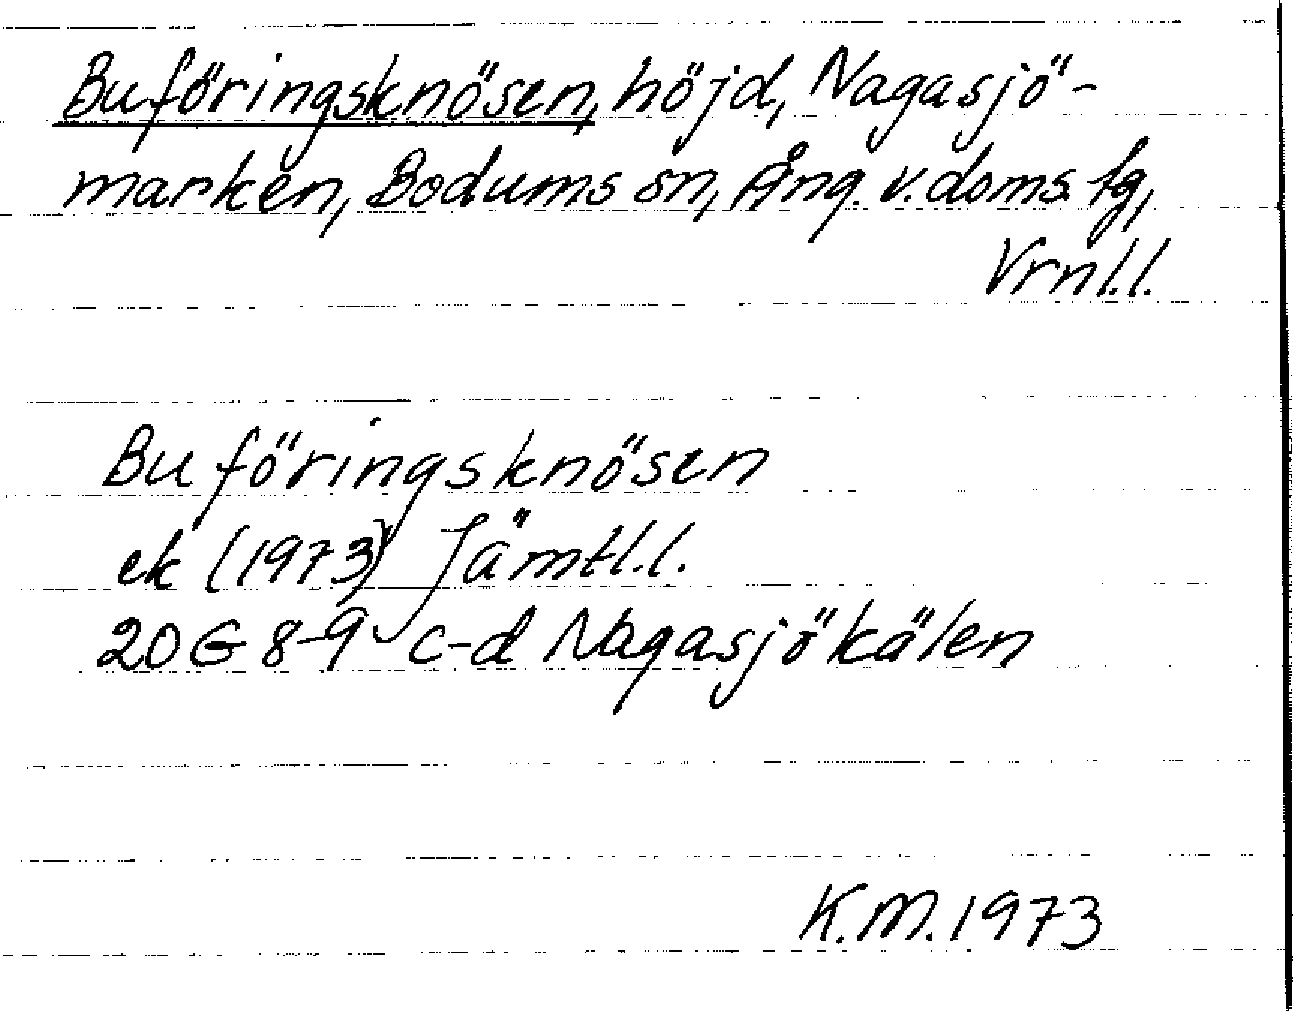 Buföringsknösen, höjd, Nagasjö-
marken, Bodums sn, Ång. v. doms. fg,
Vrnl.l.
Buföringsknösen
ek (1973) Jämtl.l.
20G 8-9 c-d Nagasjökälen
K.M. 1973